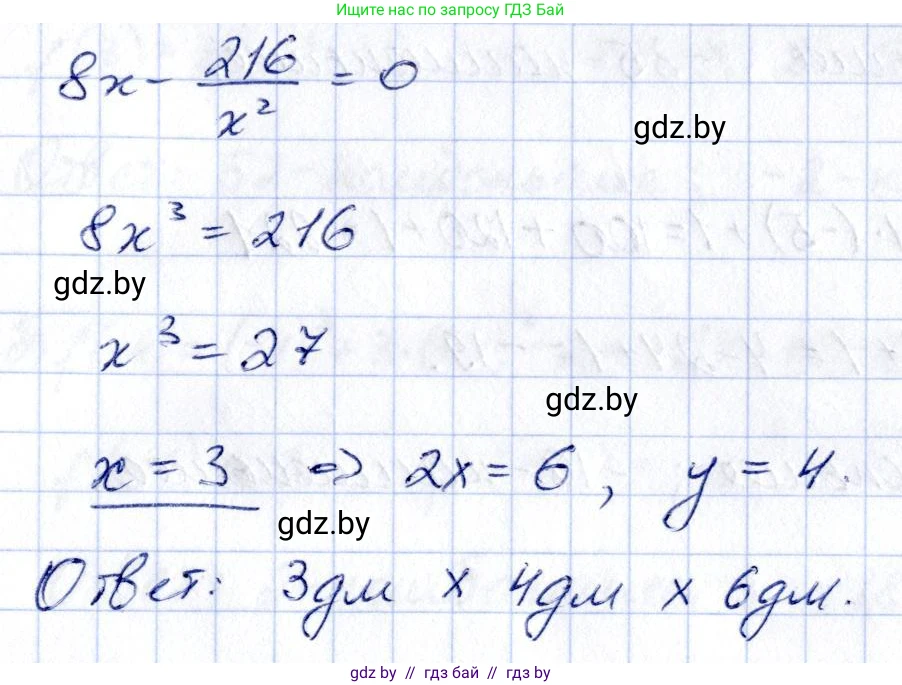 Ищите нас по запросу ГДЗ Бай
8x - 216/x² = 0
gdz.by
8x³ = 216
gdz.by
x³ = 27
gdz.by
x = 3 ⇒ 2x = 6, y = 4.
gdz.by
Ответ: 3дм x 4дм x 6дм.
gdz by // гдз бай // гдз by